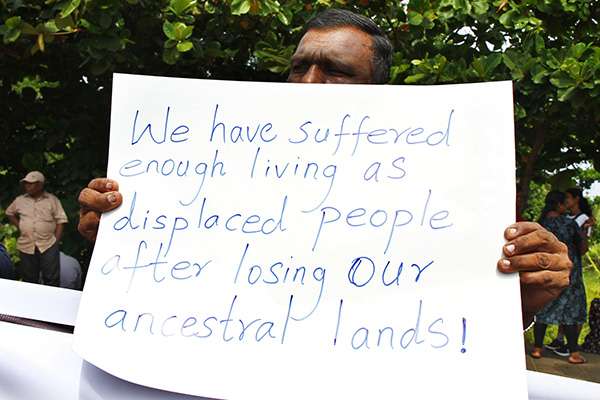 We have suffered
enough living as
displaced people
after losing our
ancestral lands!